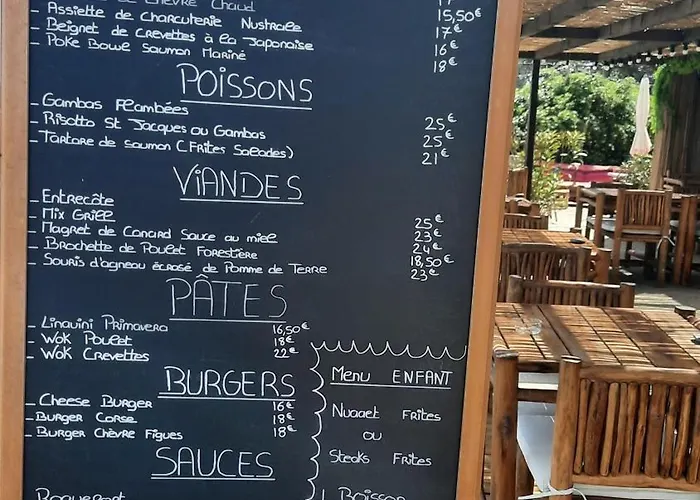 de Chèvre Chaud
Assiette de Charcuterie Nustrale 15,50€
Beignet de Crevettes à la Japonaise 17€
Poke Bowl Saumon Mariné 16€
18€
POISSONS
- Gambas Flambées 25€
- Risotto St Jacques ou Gambas 25€
- Tartare de saumon (Frites Salades) 21€
VIANDES
- Entrecôte 25€
- Mix Grill 23€
- Magret de Canard Sauce au miel 24€
- Brochette de Poulet Forestière 18,50€
- Souris d'agneau écrasé de Pomme de Terre 23€
PÂTES
- Linguini Primavera 16,50€
- Wok Poulet 18€
- Wok Crevettes 22€
BURGERS
- Cheese Burger 16€
- Burger Corse 18€
- Burger Chèvre Figues 18€
SAUCES
Roquefort
Menu ENFANT
Nugget Frites
ou
Steaks Frites
1 Boisson